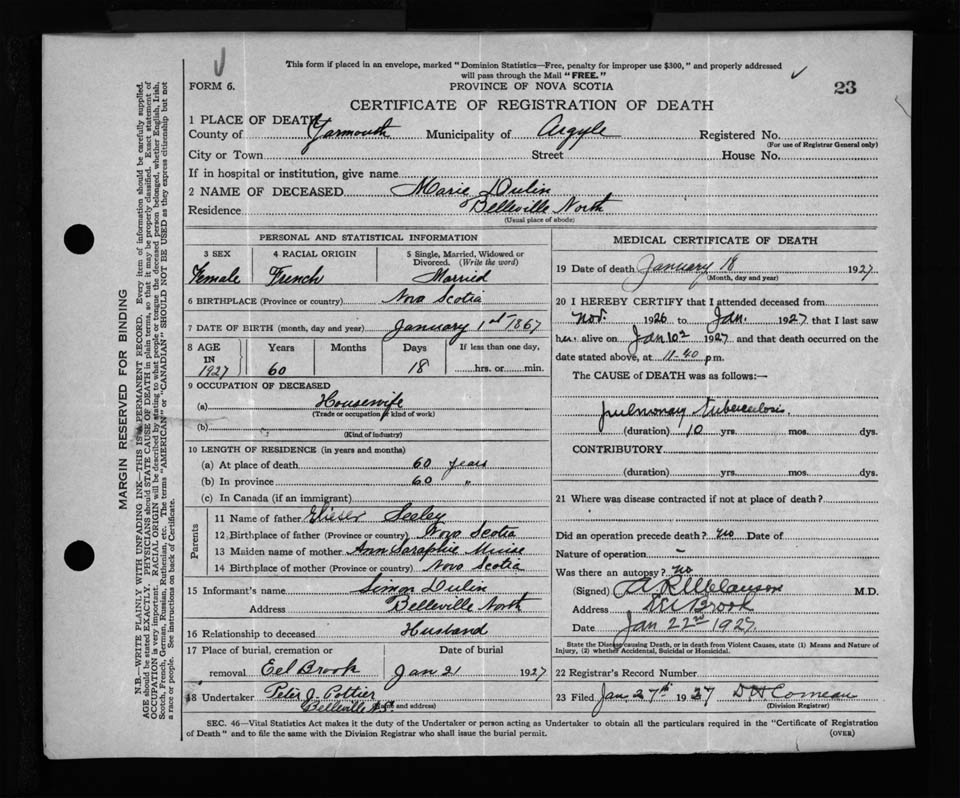 This form if placed in an envelope, marked "Dominion Statistics—Free, penalty for improper use $300," and properly addressed
will pass through the Mail "FREE."
FORM 6.
PROVINCE OF NOVA SCOTIA
23
CERTIFICATE OF REGISTRATION OF DEATH
1 PLACE OF DEATH
County of Yarmouth Municipality of Argyle Registered No.
(For use of Registrar General only)
City or Town Street House No.
If in hospital or institution, give name
2 NAME OF DECEASED Marie Dulin
Residence Belleville North
(Usual place of abode)
MARGIN RESERVED FOR BINDING
N.B.—WRITE PLAINLY WITH UNFADING INK—THIS IS A PERMANENT RECORD. Every item of information should be carefully supplied.
AGE should be stated EXACTLY. PHYSICIANS should STATE CAUSE OF DEATH in plain terms, so that it may be properly classified. Exact statement of
OCCUPATION is very important. RACIAL ORIGIN will be described by stating to what people or tongue the deceased person belonged, whether English, Irish,
Scotch, French, German, Russian, Ruthenian, etc. The terms "AMERICAN" or "CANADIAN" SHOULD NOT BE USED as they express citizenship but not
a race or people. See instructions on back of Certificate.
PERSONAL AND STATISTICAL INFORMATION
3 SEX 4 RACIAL ORIGIN 5 Single, Married, Widowed or
Divorced. (Write the word)
Female French Married
6 BIRTHPLACE (Province or country) Nova Scotia
7 DATE OF BIRTH (month, day and year) January 1st 1867
8 AGE Years Months Days If less than one day,
IN
1927 60 18 hrs. or min.
9 OCCUPATION OF DECEASED
(a) Housewife
(Trade or occupation or kind of work)
(b)
(Kind of industry)
10 LENGTH OF RESIDENCE (in years and months)
(a) At place of death 60 years
(b) In province 60 "
(c) In Canada (if an immigrant)
Parents
11 Name of father Seeley
12 Birthplace of father (Province or country) Nova Scotia
13 Maiden name of mother Ann Saraphie Muise
14 Birthplace of mother (Province or country) Nova Scotia
15 Informant's name Simon Dulin
Address Belleville North
16 Relationship to deceased Husband
17 Place of burial, cremation or Date of burial
removal Eel Brook Jan 21 1927
18 Undertaker Peter J. Pottier
Belleville (Name and address)
MEDICAL CERTIFICATE OF DEATH
19 Date of death January 18 1927
(Month, day and year)
20 I HEREBY CERTIFY that I attended deceased from
Nov. 1926 to Jan. 1927 that I last saw
her alive on Jan 10 1927 and that death occurred on the
date stated above, at 11-40 p m.
The CAUSE OF DEATH was as follows:—
pulmonary Tuberculosis
(duration) 10 yrs. mos. dys.
CONTRIBUTORY
(duration) yrs. mos. dys.
21 Where was disease contracted if not at place of death?
Did an operation precede death? no Date of
Nature of operation –
Was there an autopsy? no
(Signed) M.D.
Address Brook
Date Jan 22nd 1927
State the Disease causing Death, or in death from Violent Causes, state (1) Means and Nature of
Injury, (2) whether Accidental, Suicidal or Homicidal.
22 Registrar's Record Number
23 Filed Jan 27th 1927 D H Comeau
(Division Registrar)
SEC. 46—Vital Statistics Act makes it the duty of the Undertaker or person acting as Undertaker to obtain all the particulars required in the "Certificate of Registration
of Death" and to file the same with the Division Registrar who shall issue the burial permit. (OVER)